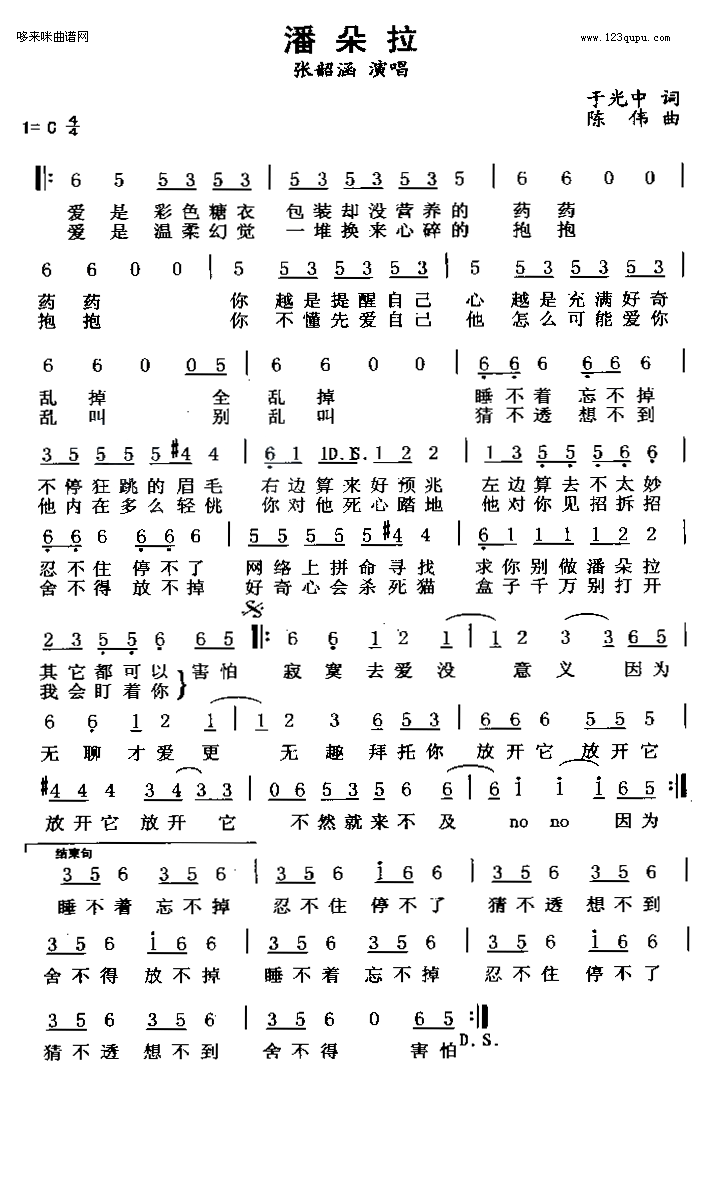 哆来咪曲谱网
潘朵拉
www.123qupu.com
张韶涵 演唱
于光中 词
1= C 4/4
陈 伟 曲
6 5 5 3 5 3 | 5 3 5 3 5 3 5 | 6 6 0 0 |
爱是彩色糖衣 包装却没营养的 药药
爱是温柔幻觉 一堆换来心碎的 抱抱
6 6 0 0 | 5 5 3 5 3 5 3 | 5 5 3 5 3 5 3 |
药药 你 越是提醒自己 心 越是充满好奇
抱抱 你 不懂先爱自己 他 怎么可能爱你
6 6 0 0 5 | 6 6 0 0 | 6 6 6 6 6 6 |
乱掉 全 乱掉 睡不着 忘不掉
乱叫 别 乱叫 猜不透 想不到
3 5 5 5 5 #4 4 | 6 1 1 1 D.S. 1 2 2 | 1 3 5 5 5 6 6 |
不停狂跳的眉毛 右边算来好预兆 左边算去不太妙
他内在多么轻佻 你对他死心踏地 他对你见招拆招
6 6 6 6 6 6 | 5 5 5 5 5 #4 4 | 6 1 1 1 1 2 2 |
忍不住 停不了 网络上拼命寻找 求你别做潘朵拉
舍不得 放不掉 好奇心会杀死猫 盒子千万别打开
2 3 5 5 6 6 5 6 6 1 2 1 | 1 2 3 3 6 5 |
其它都可以 害怕 寂寞去爱没 意义 因为
我会盯着你}
6 6 1 2 1 | 1 2 3 6 5 3 | 6 6 6 5 5 5 |
无聊才爱更 无趣拜托你 放开它 放开它
#4 4 4 3 4 4 3 3 | 0 6 5 3 5 6 6 | 6 i i i 6 5
放开它 放开 它 不然就来不及 no no 因为
结束句
3 5 6 3 5 6 | 3 5 6 i 6 6 | 3 5 6 3 5 6 |
睡不着 忘不掉 忍不住 停不了 猜不透 想不到
3 5 6 i 6 6 | 3 5 6 3 5 6 | 3 5 6 i 6 6 |
舍不得 放不掉 睡不着 忘不掉 忍不住 停不了
3 5 6 3 5 6 | 3 5 6 0 6 5
猜不透 想不到 舍不得 害怕 D.S.